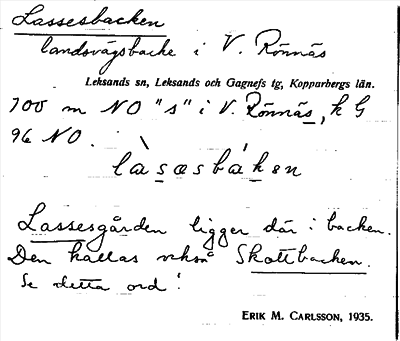 Lassesbacken
landsvägsbacke i V. Rönnäs
Leksands sn, Leksands och Gagnefs tg, Kopparbergs län.
700 m NO "s" i V. Rönnäs, k G
96 NO.
lasasbakan
Lassesgården ligger där i backen.
Den kallas också Skottbacken.
Se detta ord!
ERIK M. CARLSSON, 1935.